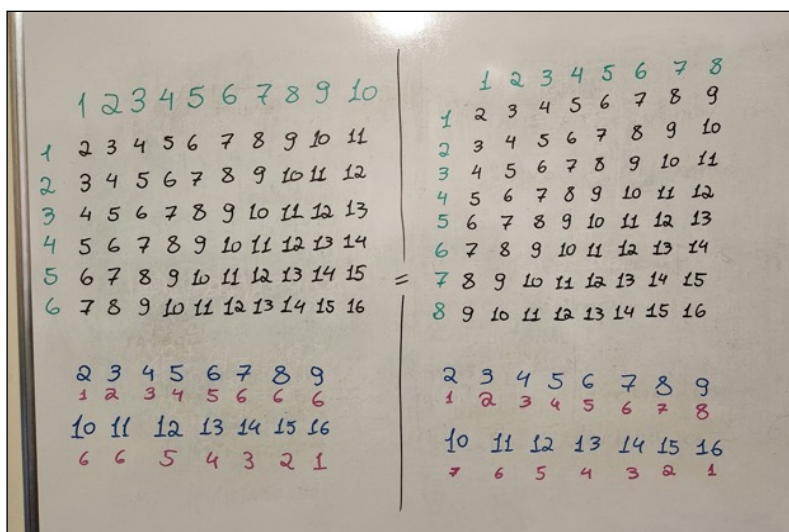 1 2 3 4 5 6 7 8 9 10
1 2 3 4 5 6 7 8 9 10 11
2 3 4 5 6 7 8 9 10 11 12
3 4 5 6 7 8 9 10 11 12 13
4 5 6 7 8 9 10 11 12 13 14
5 6 7 8 9 10 11 12 13 14 15
6 7 8 9 10 11 12 13 14 15 16
2 3 4 5 6 7 8 9
1 2 3 4 5 6 6 6
10 11 12 13 14 15 16
6 6 5 4 3 2 1
=
1 2 3 4 5 6 7 8
1 2 3 4 5 6 7 8 9
2 3 4 5 6 7 8 9 10
3 4 5 6 7 8 9 10 11
4 5 6 7 8 9 10 11 12
5 6 7 8 9 10 11 12 13
6 7 8 9 10 11 12 13 14
7 8 9 10 11 12 13 14 15
8 9 10 11 12 13 14 15 16
2 3 4 5 6 7 8 9
1 2 3 4 5 6 7 8
10 11 12 13 14 15 16
7 6 5 4 3 2 1